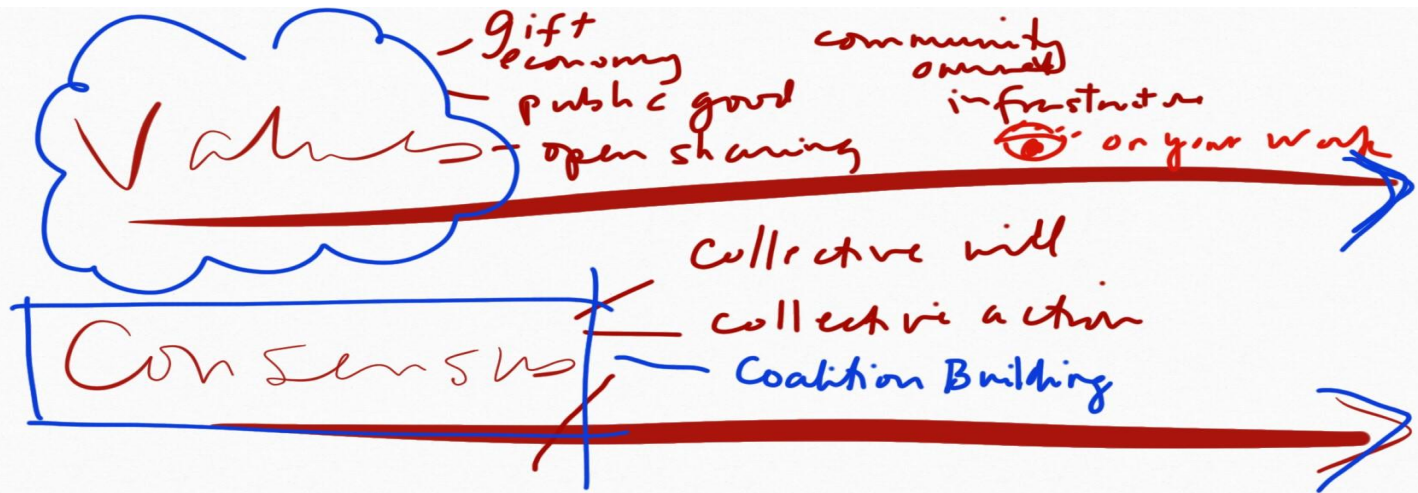 Values
gift
economy
public good
open sharing
community
owned
infrastructure
on your work
Consensus
Collective will
collective action
Coalition Building